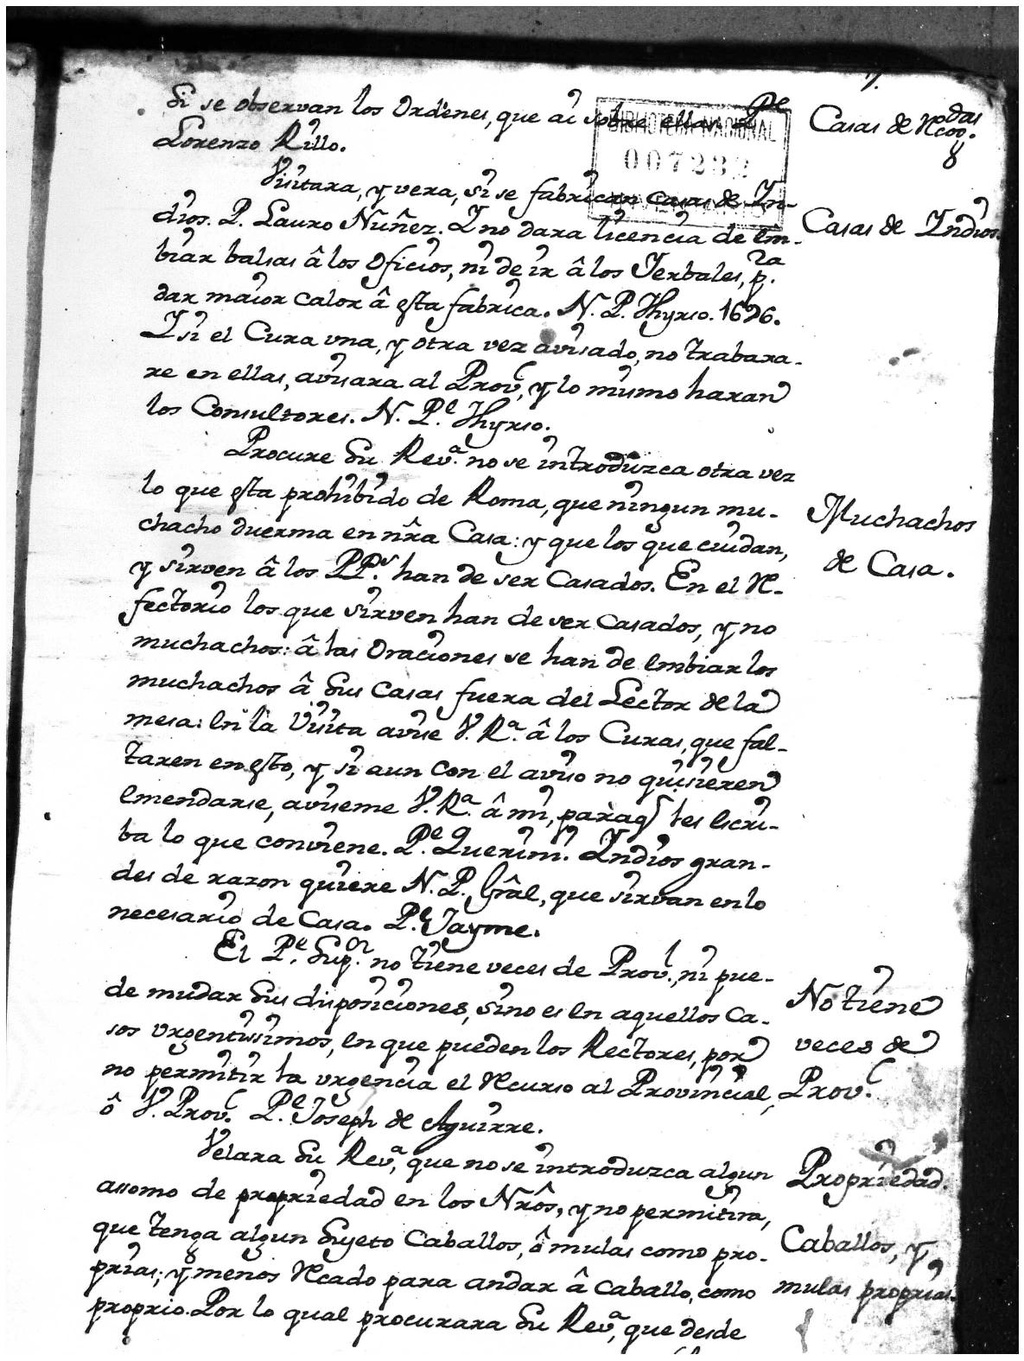 7.
Si se observan los Ordenes, que ai sobre ellas. Pe
Lorenzo Rillo.
Casas de Rcoodas.
8
BIBLIOTECA NACIONAL
007232
Visitara, y vera, si se fabrican casas de In-
dios. P. Lauro Nuñez. I no dara licencia de em-
Casas de Indios.
biar balsas â los oficios, ni de ir â los Yerbales, p.ra
dar maior calor â esta fabrica. N. P. Thyrso. 1696.
I si el Cura una, y otra vez avisado, no trabaxa-
re en ellas, avisara al Prov.l, y lo mismo haran
los Consultores. N. P.e Thyrso.
Procure Su Rev.a no se introduzca otra vez
lo que esta prohibido de Roma, que ningun mu-
chacho duerma en nr̃a Casa: y que los que cuidan,
y sirven â los PP.s han de ser Casados. En el Re-
fectorio los que sirven han de ser Casados, y no
muchachos: â las Oraciones se han de embiar los
muchachos â sus casas fuera del Lector de la
mesa: en la Visita avise V. R.a â los Curas, que fal-
taren en esto, y si aun con el aviso no quisieren
emendarse, aviseme V. R.a â mi, para q̃ les escri-
ba lo que conviene. P.e Querini. Indios gran-
des de razon quiere N. P. Grâl, que sirvan en lo
necesario de Casa. P.e Jayme.
Muchachos
de Casa.
El P.e Sup.or no tiene veces de Prov.l, ni pue-
de mudar sus disposiciones, sino es en aquellos Ca-
sos urgentisimos, en que pueden los Rectores, por
no permitir la urgencia el Recurso al Provincial,
ô V. Prov.l P.e Joseph de Aguirre.
No tiene
veces de
Prov.l
Velara Su Rev.a, que no se introduzca algun
assomo de propriedad en los Nrôs, y no permitira,
que tenga algun Sujeto Caballos, ô mulas como pro-
prias; y menos Recado para andar â Caballo, como
proprio. Por lo qual procurara Su Rev.a, que desde
Propriedad
Caballos, y
mulas proprias.